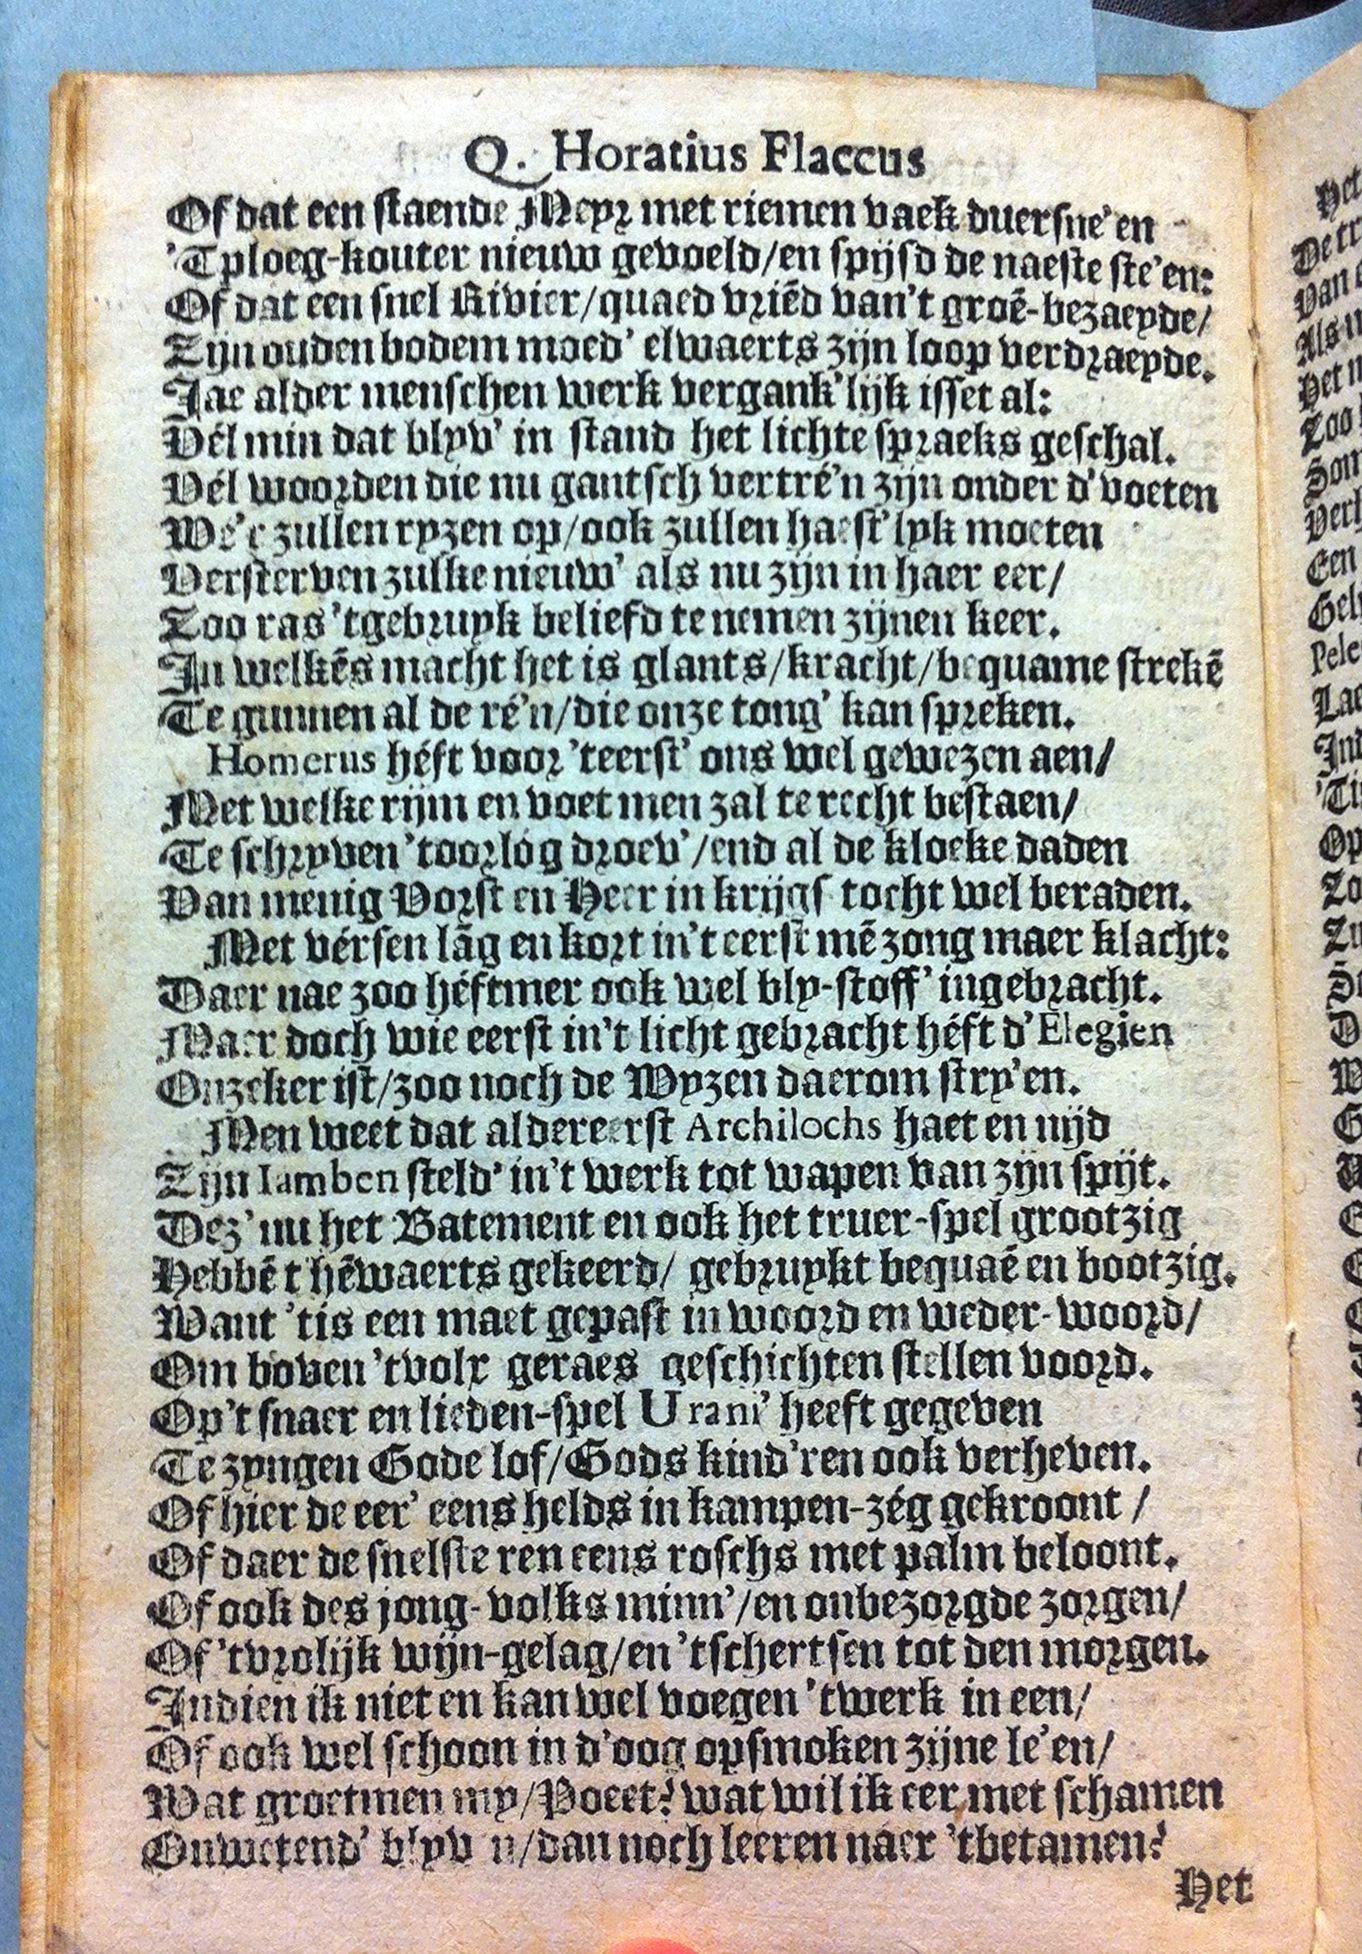 Q. Horatius Flaccus
Of dat een staende Meyr met riemen vaek duersne'en
'Tploeg-kouter nieuw gevoeld/en spijsd de naeste ste'en:
Of dat een snel Rivier/quaed vriẽd van't groẽ-bezaeyde/
Zijn ouden bodem moed' elwaerts zijn loop verdraeyde.
Jae alder menschen werk vergank'lijk isset al:
Vél min dat blyv' in stand het lichte spraeks geschal.
Vél woorden die nu gantsch vertré'n zijn onder d'voeten
We'r zullen ryzen op/ook zullen haest'lyk moeten
Versterven zulke nieuw' als nu zijn in haer eer/
Zoo ras 'tgebruyk beliefd te nemen zijnen keer.
In welkẽs macht het is glants/kracht/bequame strekẽ
Te gunnen al de ré'n/die onze tong' kan spreken.
Homerus héft voor 'teerst' ons wel gewezen aen/
Met welke rijm en voet men zal te recht bestaen/
Te schryven 'toorlóg droev'/end al de kloeke daden
Van menig Vorst en Heer in krijgs tocht wel beraden.
Met vérsen lãg en kort in't eerst mẽ zong maer klacht:
Daer nae zoo héftmer ook wel bly-stoff' ingebracht.
Maer doch wie eerst in't licht gebracht héft d'Elegien
Onzeker ist/zoo noch de Wyzen daerom stry'en.
Men weet dat aldereerst Archilochs haet en nijd
Zijn Iamben steld' in't werk tot wapen van zijn spijt.
Dez' nu het Batement en ook het truer-spel grootzig
Hebbẽ t'hẽwaerts gekeerd/ gebruykt bequaẽ en bootzig.
Want 'tis een maet gepast in woord en weder-woord/
Om boven 'tvolx geraes geschichten stellen voord.
Op't snaer en lieden-spel Urani' heeft gegeven
Te zyngen Gode lof/Gods kind'ren ook verheven.
Of hier de eer' eens helds in kampen-zég gekroont /
Of daer de snelste ren eens roschs met palm beloont.
Of ook des jong-volks minn'/en onbezorgde zorgen/
Of 'tvrolijk wijn-gelag/en 'tschertsen tot den morgen.
Indien ik niet en kan wel voegen 'twerk in een/
Of ook wel schoon in d'oog opsmoken zijne le'en/
Wat groetmen my/Poeet? wat wil ik eer met schamen
Onwetend' blyv n/dan noch leeren naer 'tbetamen?
Het